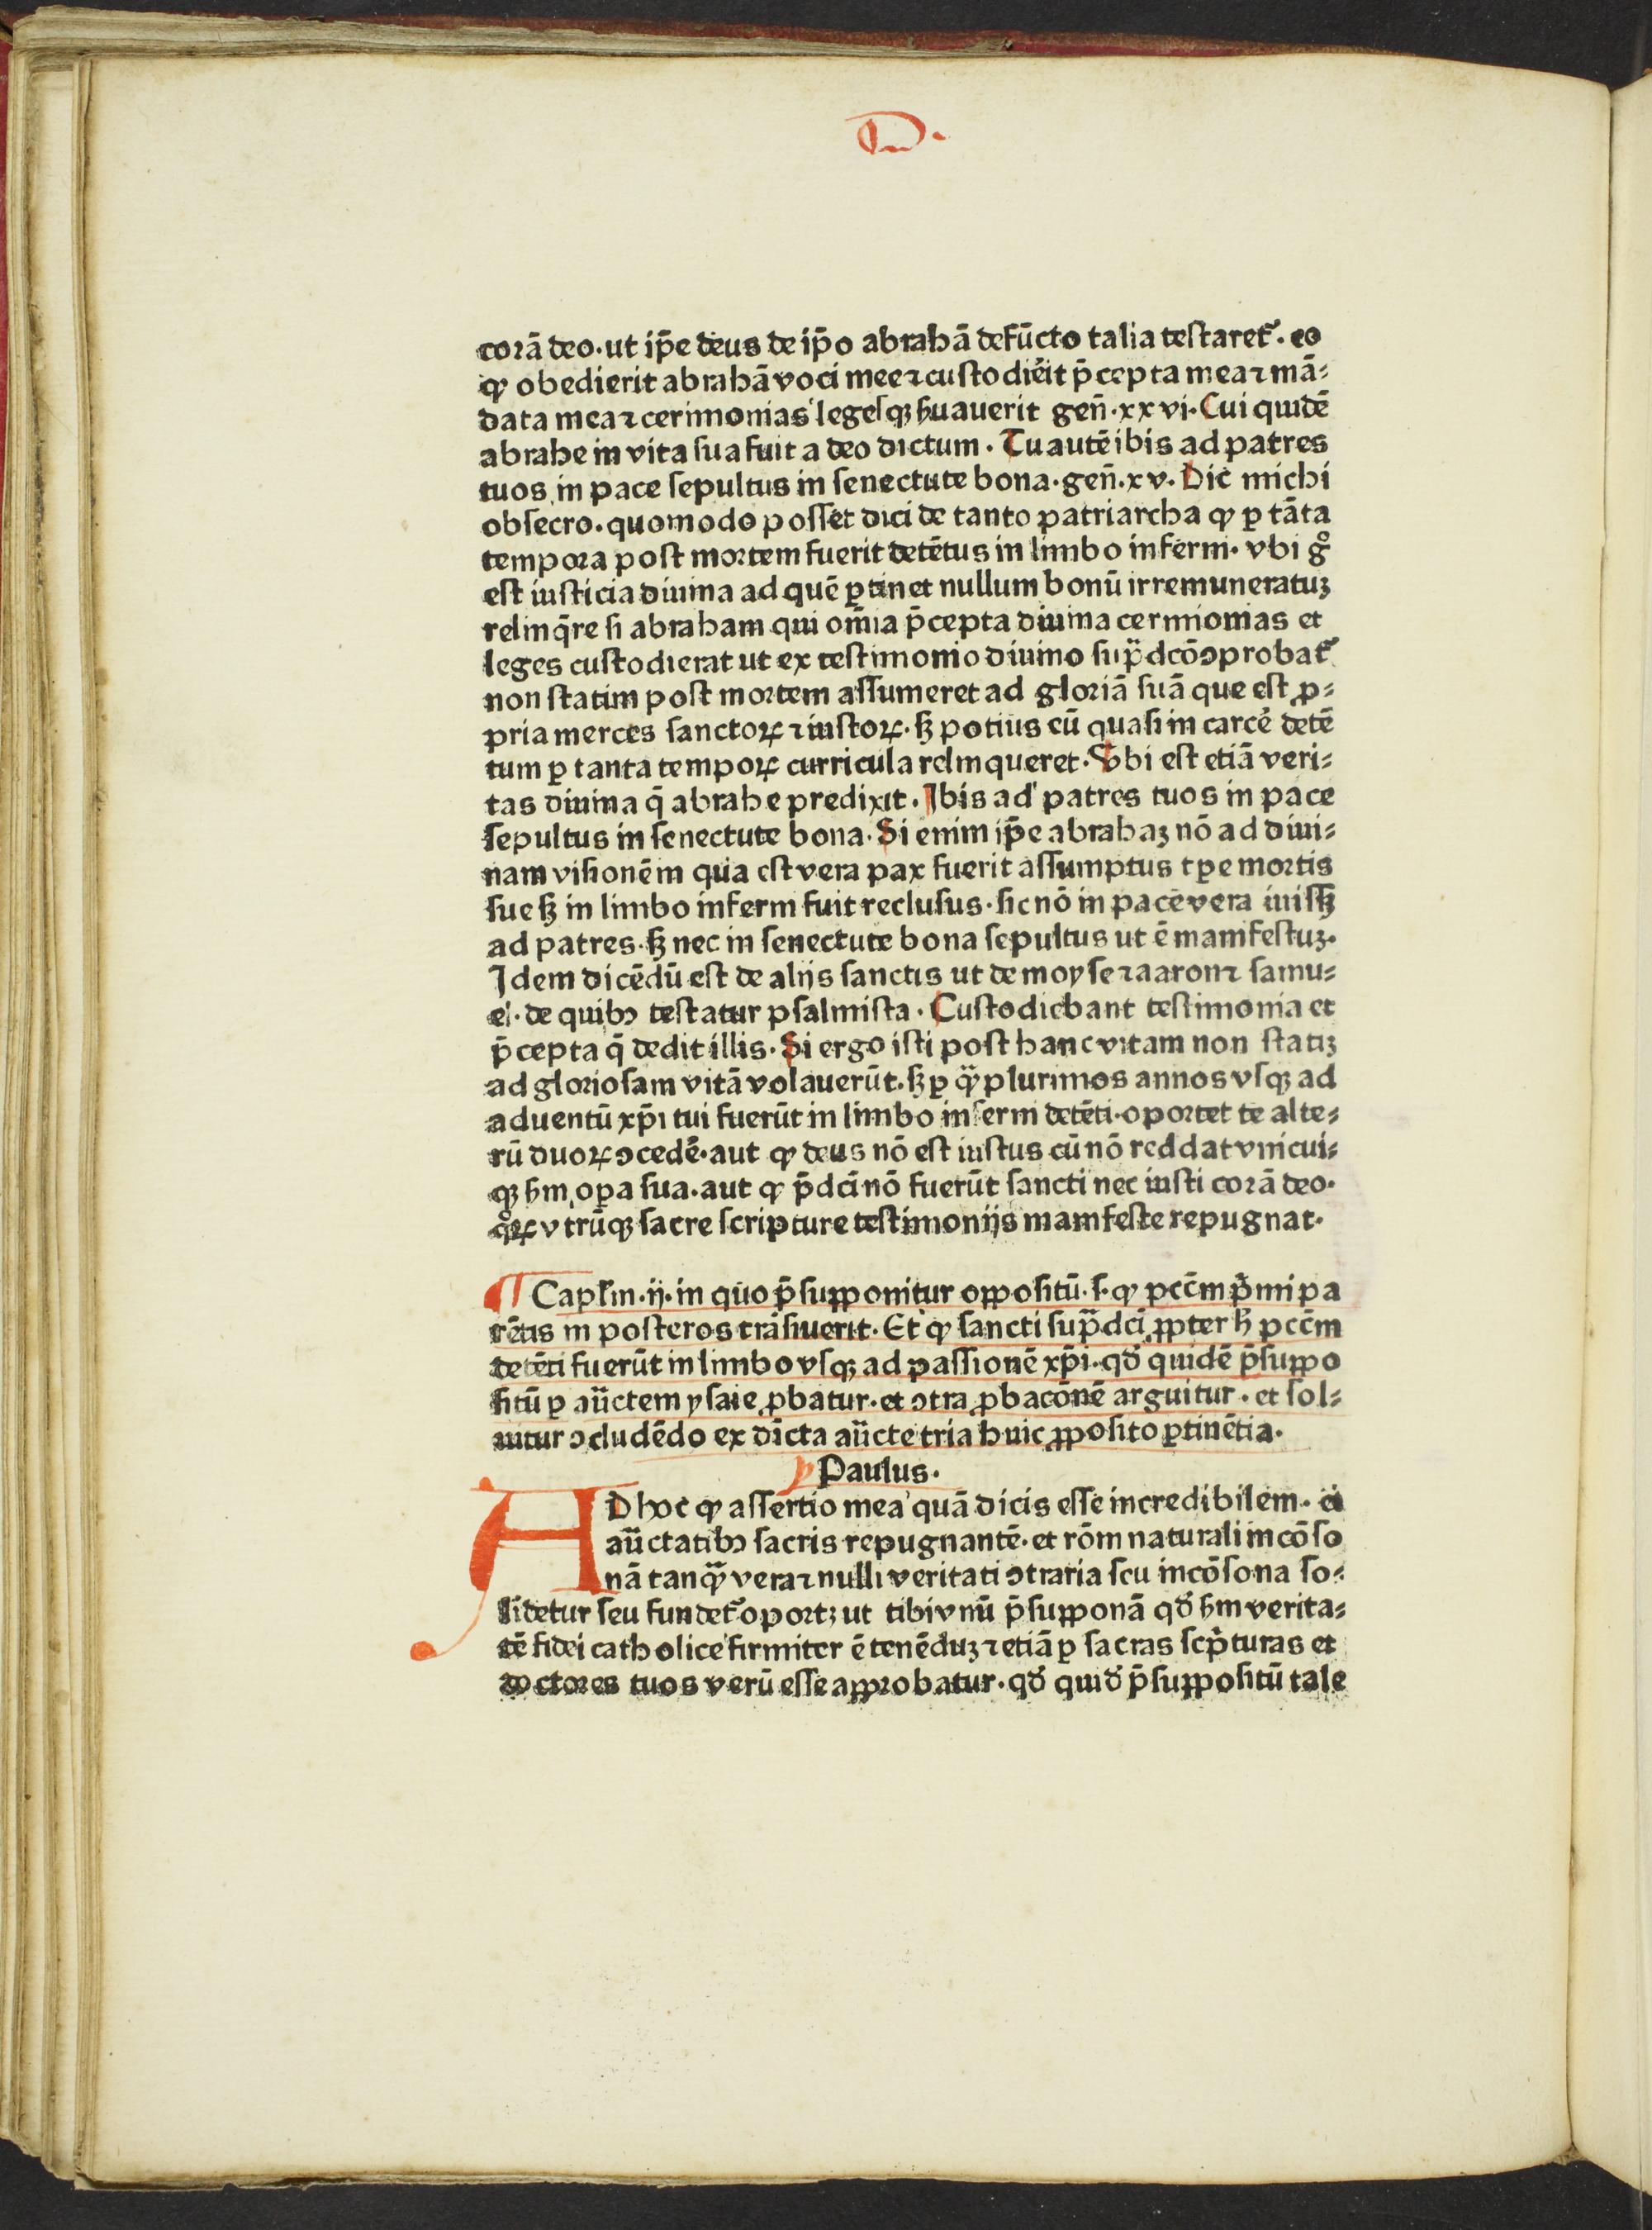 D.
corā deo·ut ip̄e deus de ip̄o abrahā defūcto talia testaret᷑· eo
ꝙ obedierit abrahā voci mee ⁊ custodierit p̄cepta mea ⁊ mā⸗
data mea ⁊ cerimonias legesqꝫ ẜuauerit gen̄·xxvi·Cui quidē
abrahe in vita sua fuit a deo dictum·Tu autē ibis ad patres
tuos in pace sepultus in senectute bona·gen̄·xv·Dic michi
obsecro·quomodo posset dici de tanto patriarcha ꝙ ꝑ tāta
tempora post mortem fuerit detētus in limbo inferni·vbi gͦ
est iusticia diuina ad quē ꝑtinet nullum bonū irremuneratuꝫ
relinq̄re si abraham qui om̄ia p̄cepta diuina cermionias et
leges custodierat ut ex testimonio diuino sup̄dcō ꝯprobat᷑
non statim post mortem assumeret ad gloriā suā que est ꝓ⸗
pria merces sanctoꝝ ⁊ iustoꝝ·sꝫ potius eū quasi in carcē detē
tum ꝑ tanta tempoꝝ curricula relinqueret·Vbi est etiā veri⸗
tas diuina q̄ abrahe predixit·Ibis ad patres tuos in pace
sepultus in senectute bona·Si enim ip̄e abrahaꝫ nō ad diui⸗
nam visionēm qua est vera pax fuerit assumptus tꝑe mortis
sue sꝫ in limbo inferni fuit reclusus·sic nō in pace vera iuisꝫ
ad patres·sꝫ nec in senectute bona sepultus ut ē manifestuꝫ·
Idem dicēdū est de alijs sanctis ut de moyse ⁊ aaron ⁊ samu⸗
el·de quibꝰ testatur psalmista·Custodiebant testimonia et
p̄cepta q̄ dedit illis·Si ergo isti post hanc vitam non statiꝫ
ad gloriosam vitā volauerūt·sꝫ ꝑ qᷓꝫ plurimos annos vsqꝫ ad
aduentū xp̄i tui fuerūt in limbo inferni detēti·oportet te alte⸗
rū duoꝝ ꝯcedē·aut ꝙ deus nō est iustus cū nō reddat vnicui⸗
qꝫ ẜm oꝑa sua·aut ꝙ p̄dci nō fuerūt sancti nec iusti corā deo·
qͦꝝ vtrūqꝫ sacre scripture testimonijs manifeste repugnat·
¶ Capl'm·ij·in quo p̄supponitur oppositū·s·ꝙ pccm̄ p̄mi pa
rētis in posteros trāsiuerit·Et ꝙ sancti sup̄dci ꝓpter h̄ pccm̄
detēti fuerūt in limbo vsqꝫ ad passionē xp̄i·qd̄ quidē p̄suppo
sitū ꝑ auctem ysaie ꝓbatur·et ꝯtra ꝓbacōnē arguitur·et sol⸗
uitur ꝯcludēdo ex dicta aucte tria huic ꝓposito ꝑtinētia·
Paulus·
AD hoc ꝙ assertio mea quā dicis esse incredibilem· ei
auctatibꝰ sacris repugnantē·et rōm naturali incōso
nā tanqᷓꝫ vera ⁊ nulli veritati ꝯtraria seu incōsona so⸗
lidetur seu fundet᷑ oportꝫ ut tibi vnū p̄supponā qd̄ ẜm verita⸗
tē fidei catholice firmiter ē tenēduꝫ ⁊ etiā ꝑ sacras scp̄turas et
doctores tuos verū esse approbatur·qd̄ quid̄ p̄suppositū tale